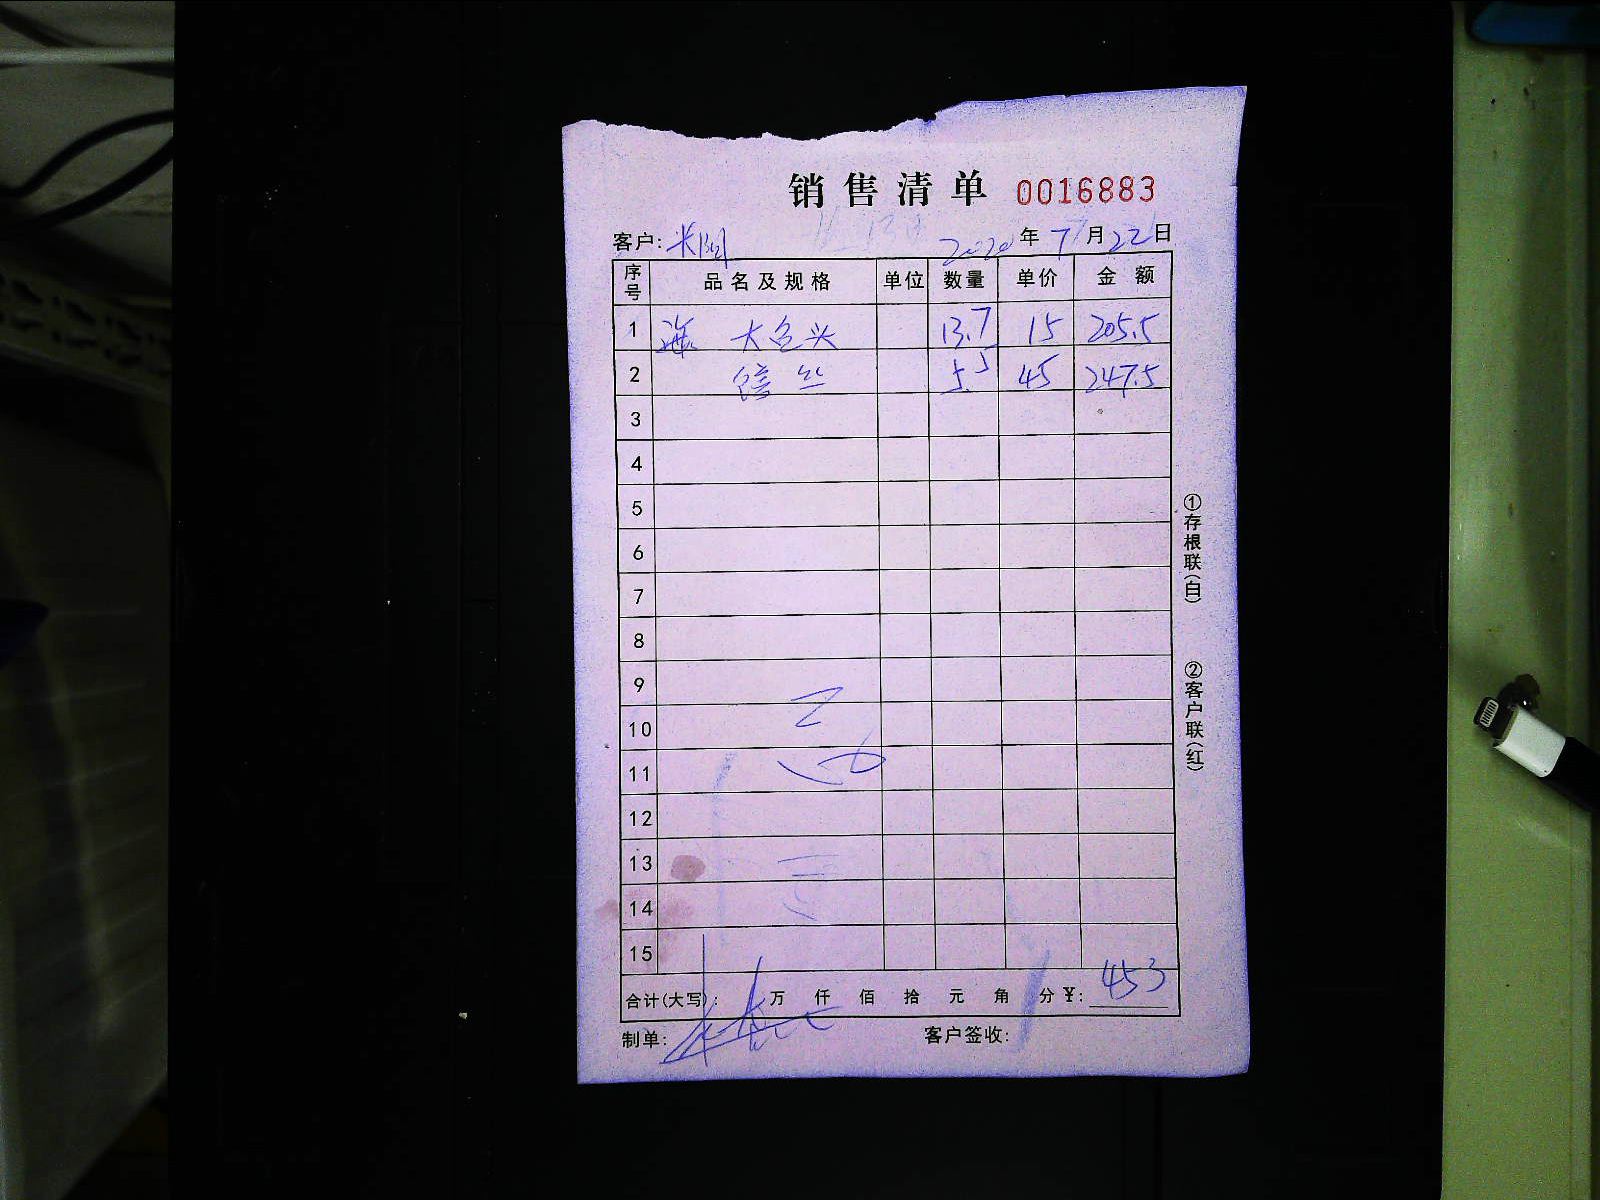 销售清单 0016883
客户: 2020年7月22日
序号 品名及规格 单位 数量 单价 金额
1 海 大包头 13.7 15 205.5
2 丝 5.5 45 247.5
3
4
5
6
7
8
9
10
11
12
13
14
15
合计(大写): 万 仟 佰 拾 元 角 分 ¥: 453
制单: 客户签收:
①存根联(白)
②客户联(红)